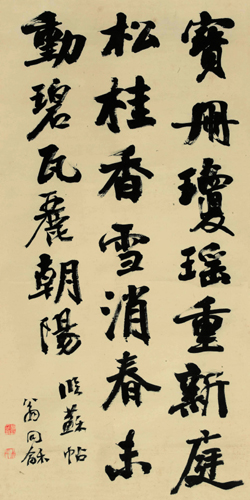 寶册瓊瑤重新庭
松桂香雪消春未
動碧瓦麗朝陽
臨蘇帖
翁同龢